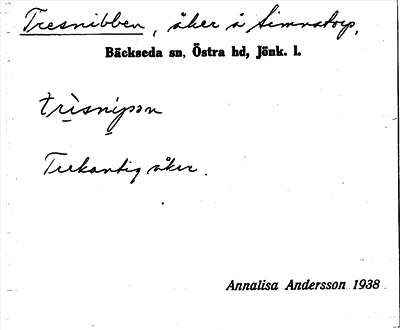 Tresnibben, åker å Simnatorp,
Bäckseda sn, Östra hd, Jönk. l.
trìsnìpən
Trekantig åker.
Annalisa Andersson 1938